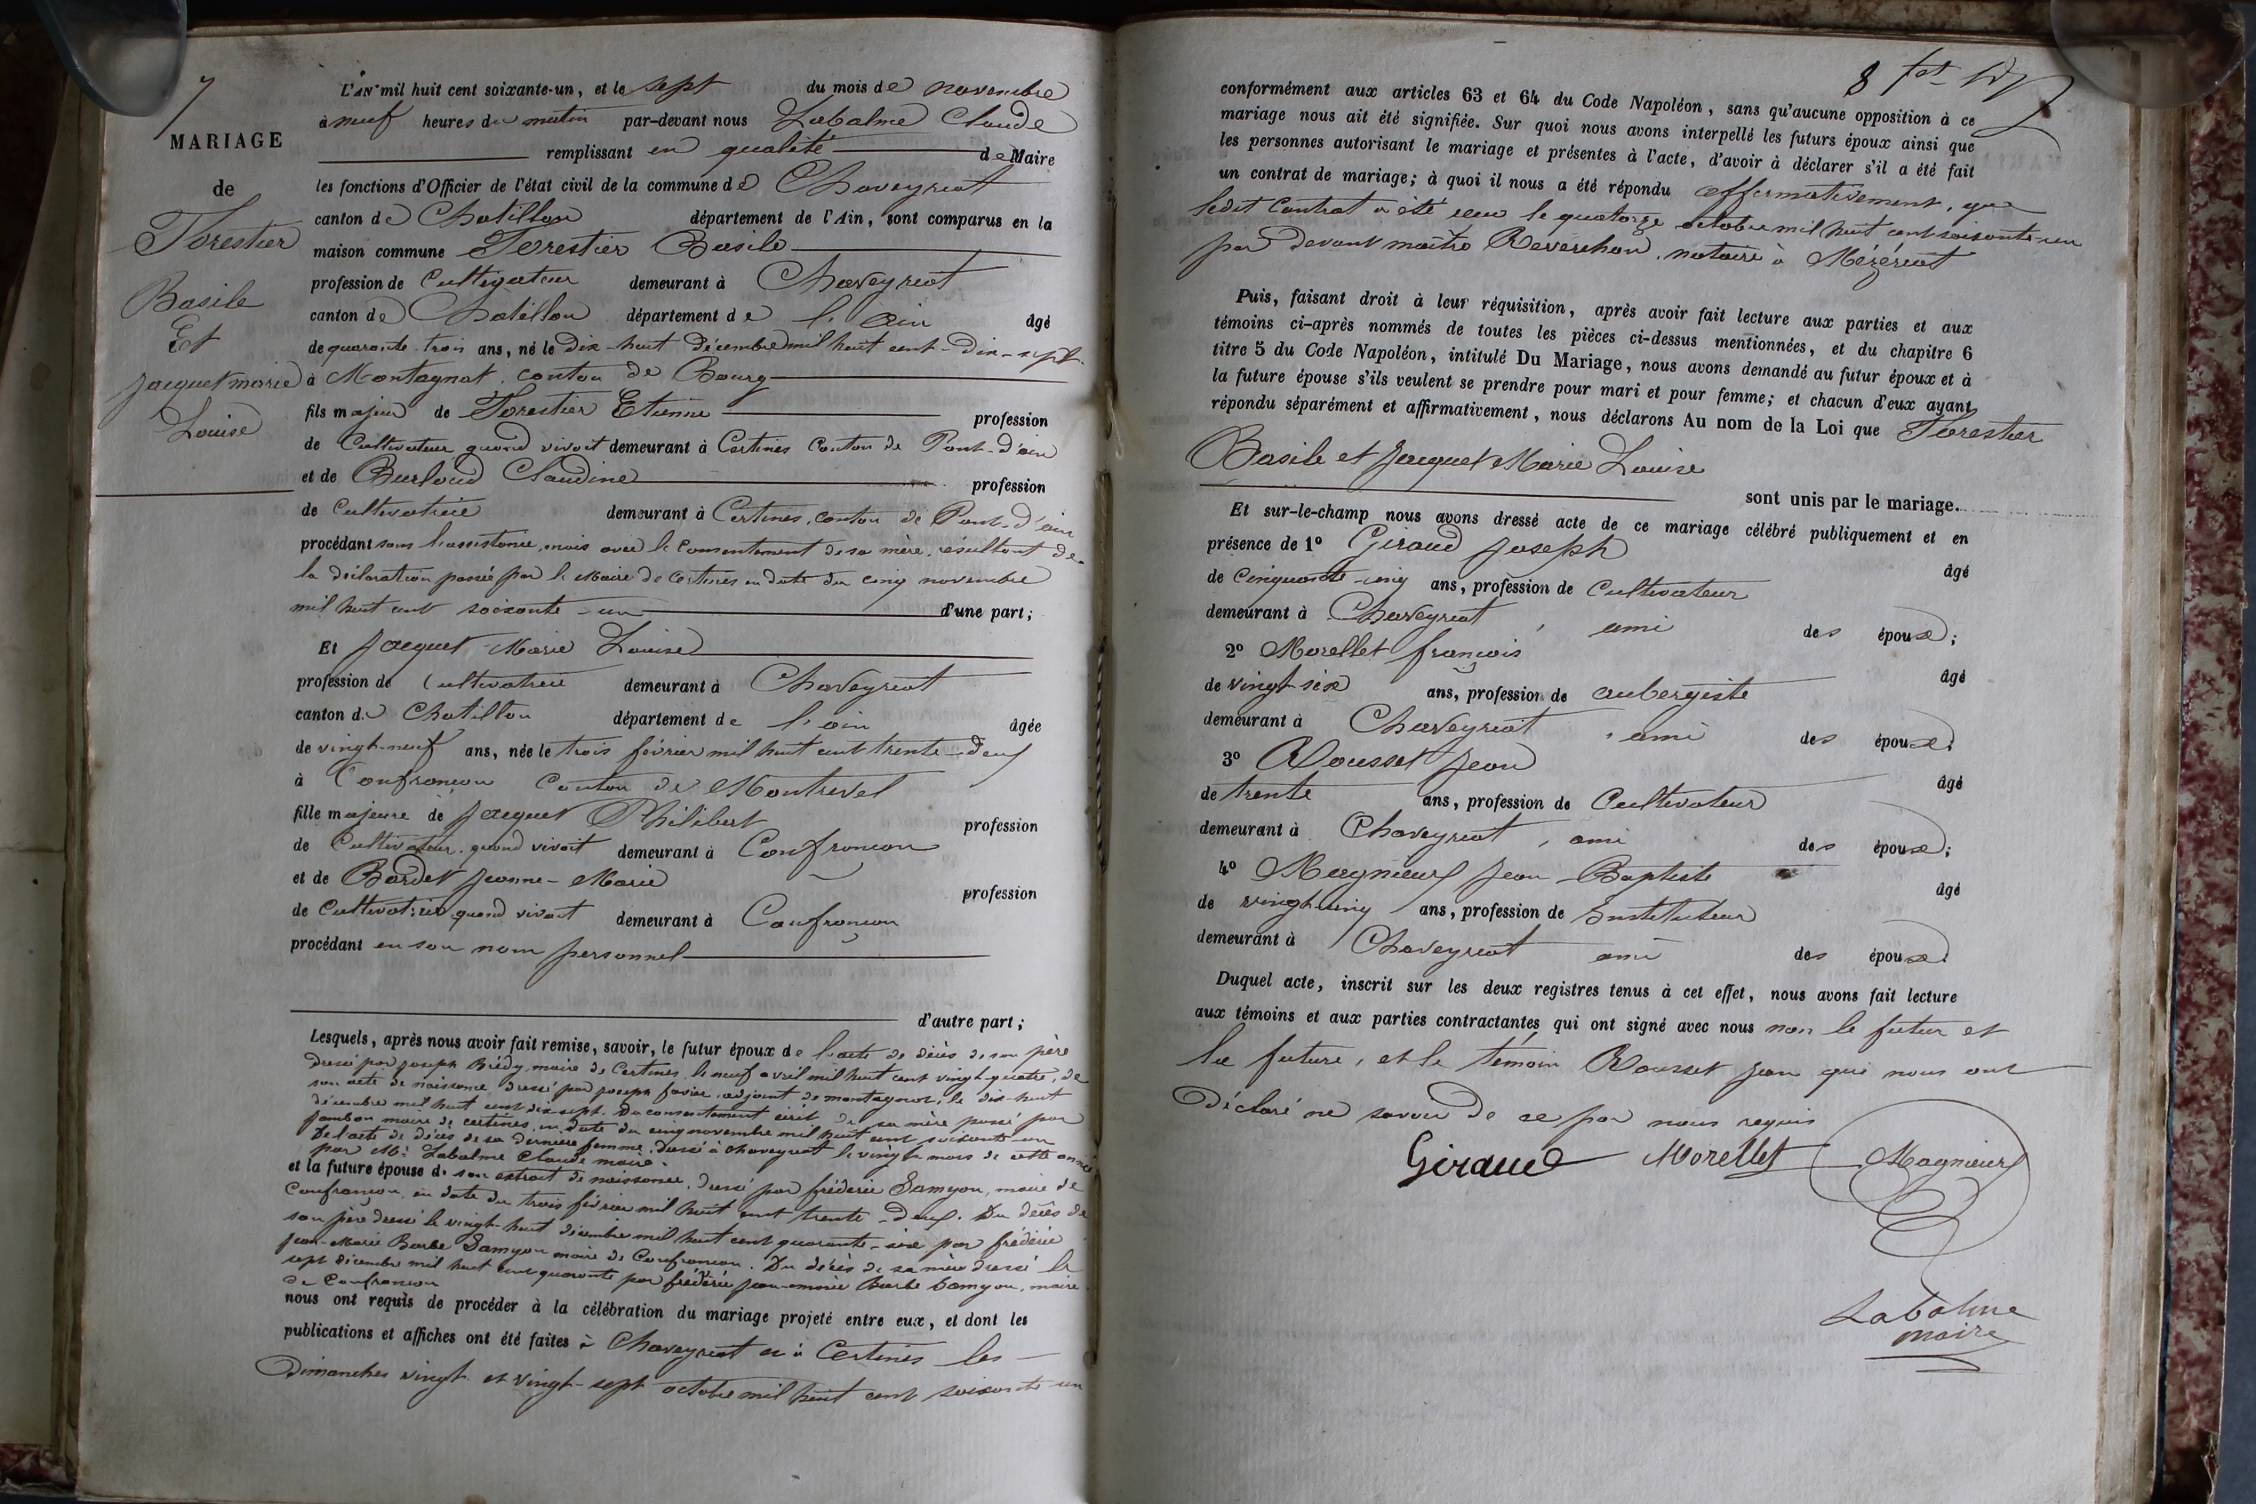 7
MARIAGE
de
Forestier
Basile
Et
Jacquet marie
Louise
L'AN mil huit cent soixante-un, et le sept du mois de novembre
à neuf heures du matin par-devant nous Labalme Claude
remplissant en qualité de Maire
les fonctions d'Officier de l'état civil de la commune de Chaveyriat
canton de Chatillon département de l'Ain, sont comparus en la
maison commune Forestier Basile
profession de Cultivateur demeurant à Chaveyriat
canton de Chatillon département de l'ain âgé
de quarante-trois ans, né le dix-huit décembre mil huit cent-dix-sept
à Montagnat, canton de Bourg
fils majeur de Forestier Etienne profession
de Cultivateur quand vivait demeurant à Certines Canton de Pont-d'ain
et de Burloud Claudine profession
de Cultivatrice demeurant à Certines, canton de Pont-d'ain
procédant sans l'assistance, mais avec le consentement de sa mère, résultant de
la déclaration passée par le Maire de Certines en date du cinq novembre
mil huit cent soixante-un d'une part;
Et Jacquet Marie Louise
profession de Cultivatrice demeurant à Chaveyriat
canton de Chatillon département de l'ain âgée
de vingt-neuf ans, née le trois février mil huit cent trente-deux
à Confrançon Canton de Montrevel
fille majeure de Jacquet Philibert profession
de Cultivateur quand vivait demeurant à Confrançon
et de Bardet Jeanne-Marie profession
de Cultivatrice quand vivait demeurant à Confrançon
procédant en son nom personnel
d'autre part;
Lesquels, après nous avoir fait remise, savoir, le futur époux de l'acte de décès de son père
dressé par joseph Brédy, maire de Certines, le neuf avril mil huit cent vingt-quatre, de
son acte de naissance dressé par joseph favier, adjoint de montagnat, le dix-huit
décembre mil huit cent dix-sept. Du consentement écrit de sa mère passé par
Jambon maire de certines, en date du cinq novembre mil huit cent soixante-un
De l'acte de décès de sa dernière femme, dressé à chaveyriat le vingt mars de cette année
par Mr Labalme Claude maire.
et la future épouse de son extrait de naissance, dressé par frédéric Samyon, maire de
Confrançon, en date du trois février mil huit cent trente-deux. Du décès de
son père dressé le vingt-huit décembre mil huit cent quarante-six par frédéric
Jean-Marie Barbe Samyon maire de Confrançon. Du décès de sa mère dressé le
sept décembre mil huit cent quarante par frédéric jean-marie Barbe Samyon, maire
de Confrançon
nous ont requis de procéder à la célébration du mariage projeté entre eux, et dont les
publications et affiches ont été faites à Chaveyriat et à Certines les
Dimanches vingt et vingt-sept octobre mil huit cent soixante-un
8
conformément aux articles 63 et 64 du Code Napoléon, sans qu'aucune opposition à ce
mariage nous ait été signifiée. Sur quoi nous avons interpellé les futurs époux ainsi que
les personnes autorisant le mariage et présentes à l'acte, d'avoir à déclarer s'il a été fait
un contrat de mariage; à quoi il nous a été répondu affirmativement, que
ledit Contrat a été reçu le quatorze octobre mil huit cent soixante-un
par devant maître Reverchon, notaire à Mézériat
Puis, faisant droit à leur réquisition, après avoir fait lecture aux parties et aux
témoins ci-après nommés de toutes les pièces ci-dessus mentionnées, et du chapitre 6
titre 5 du Code Napoléon, intitulé Du Mariage, nous avons demandé au futur époux et à
la future épouse s'ils veulent se prendre pour mari et pour femme; et chacun d'eux ayant
répondu séparément et affirmativement, nous déclarons Au nom de la Loi que Forestier
Basile et Jacquet Marie Louise
sont unis par le mariage.
Et sur-le-champ nous avons dressé acte de ce mariage célébré publiquement et en
présence de 1º Giraud Joseph âgé
de Cinquante-cinq ans, profession de Cultivateur
demeurant à Chaveyriat, ami des époux;
2º Morellet françois âgé
de vingt-six ans, profession de aubergiste
demeurant à Chaveyriat, ami des époux;
3º Rousset Jean âgé
de trente ans, profession de Cultivateur
demeurant à Chaveyriat, ami des époux;
4º Magnieux Jean-Baptiste âgé
de vingt-cinq ans, profession de Instituteur
demeurant à Chaveyriat ami des époux.
Duquel acte, inscrit sur les deux registres tenus à cet effet, nous avons fait lecture
aux témoins et aux parties contractantes qui ont signé avec nous non le futur et
la future, et le témoin Rousset Jean qui nous ont
Déclaré ne savoir de ce par nous requis
Giraud Morellet Magnieux
Labalme
maire